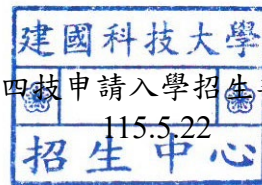 建國科技大學
四技申請入學招生
115.5.22
招生中心